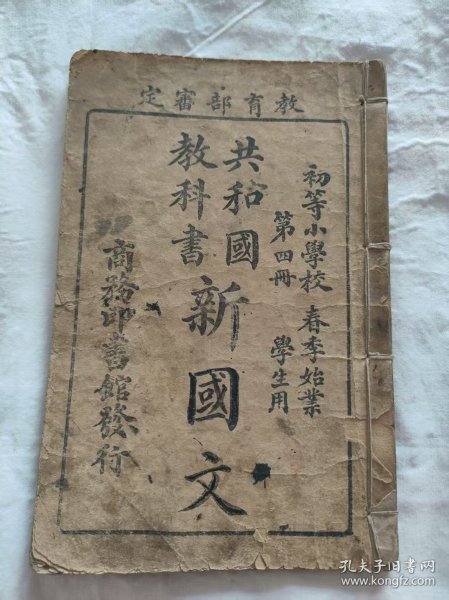 教育部審定
初等小學校 春季始業
第四冊 學生用
共和國
教科書
新國文
商務印書館發行
孔夫子旧书网
www.kongfz.com